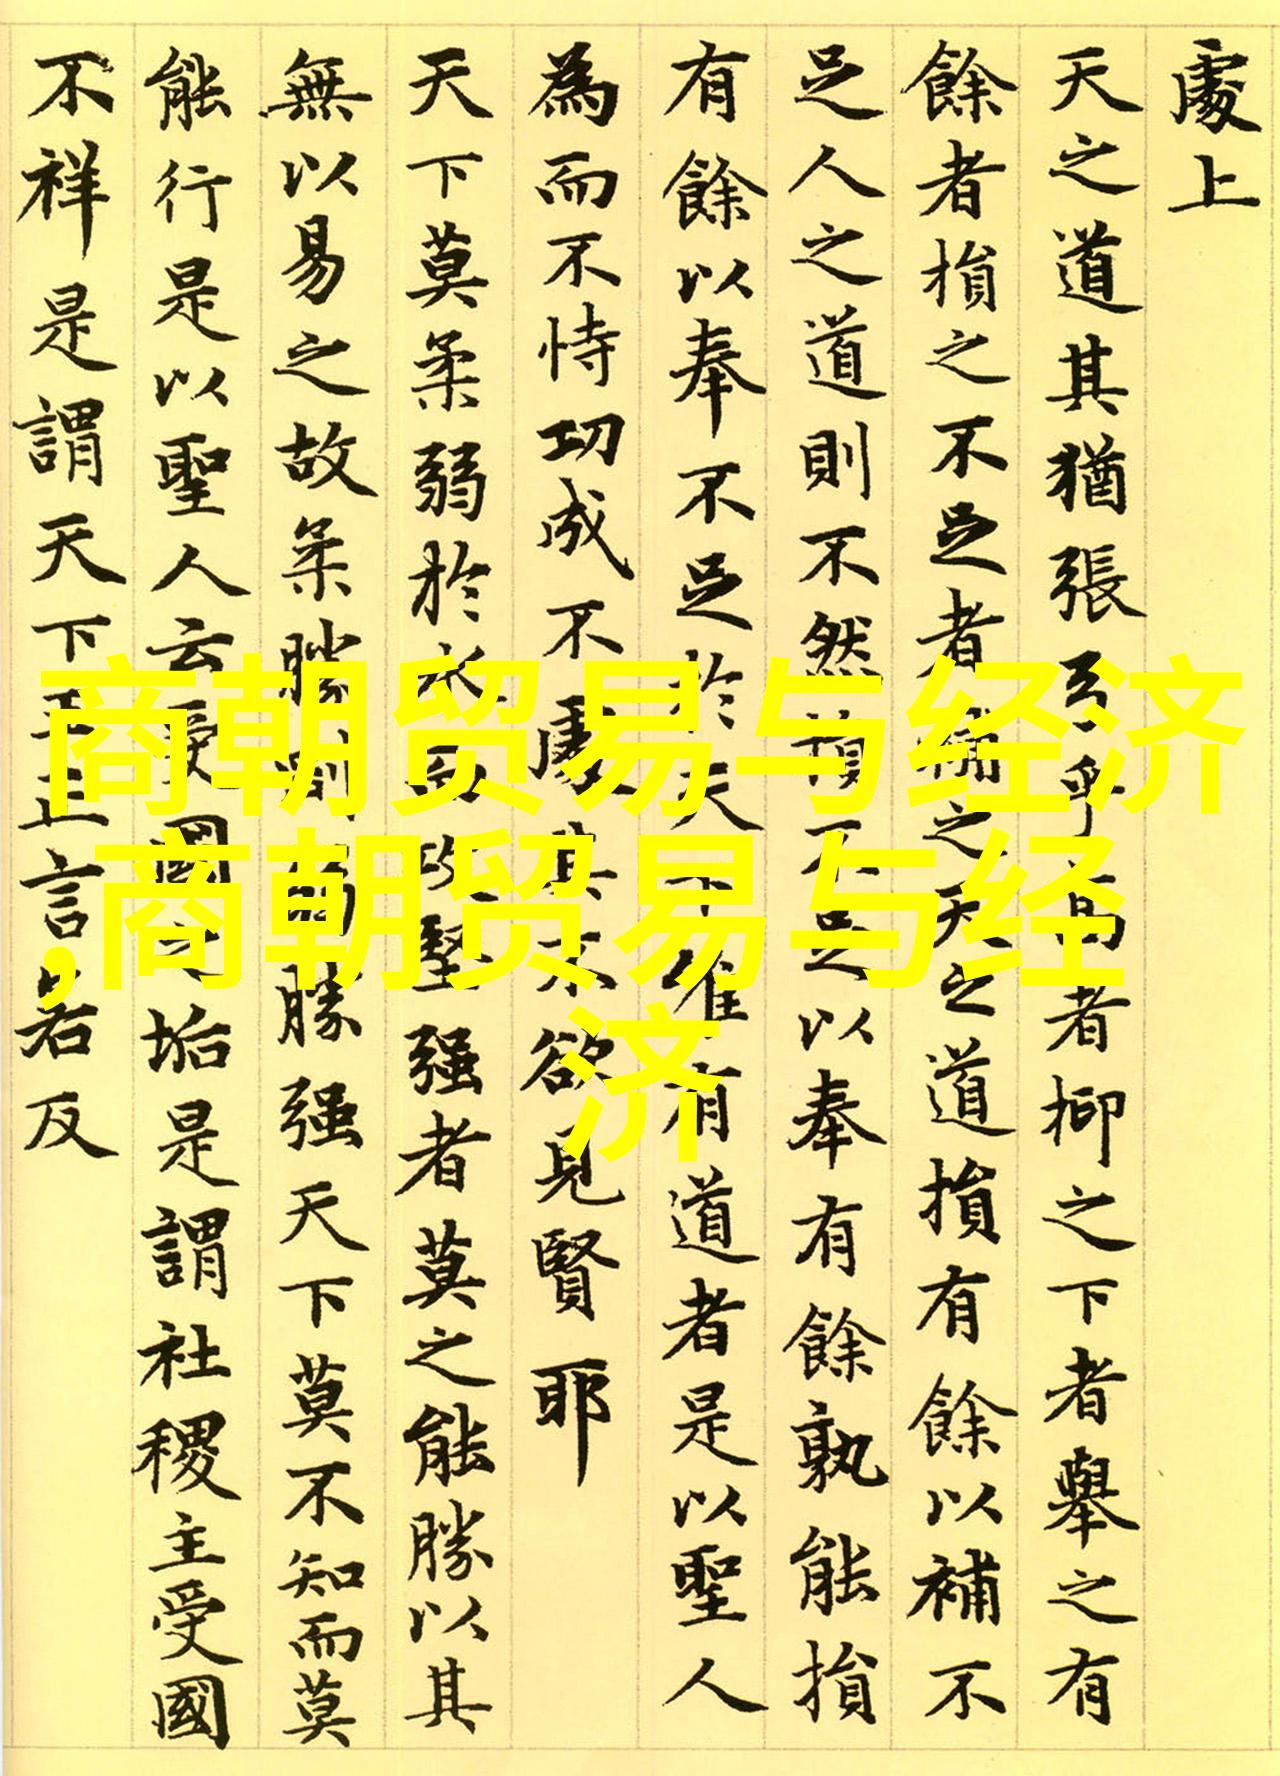 處上
天之道其猶張弓乎高者抑之下者舉之有
餘者損之不足者補之天之道損有餘以補不
足人之道則不然損不足以奉有餘孰能損
有餘以奉不足於天下唯有道者是以聖人
為而不恃功成不處其不欲見賢耶
天下莫柔弱於水而攻堅强者莫之能勝以其
無以易之故柔勝剛弱勝强天下莫不知而莫
能行是以聖人云受國之垢是謂社稷主受國
不祥是謂天下王正言若反
商朝贸易与经济
,商朝贸易与经
济